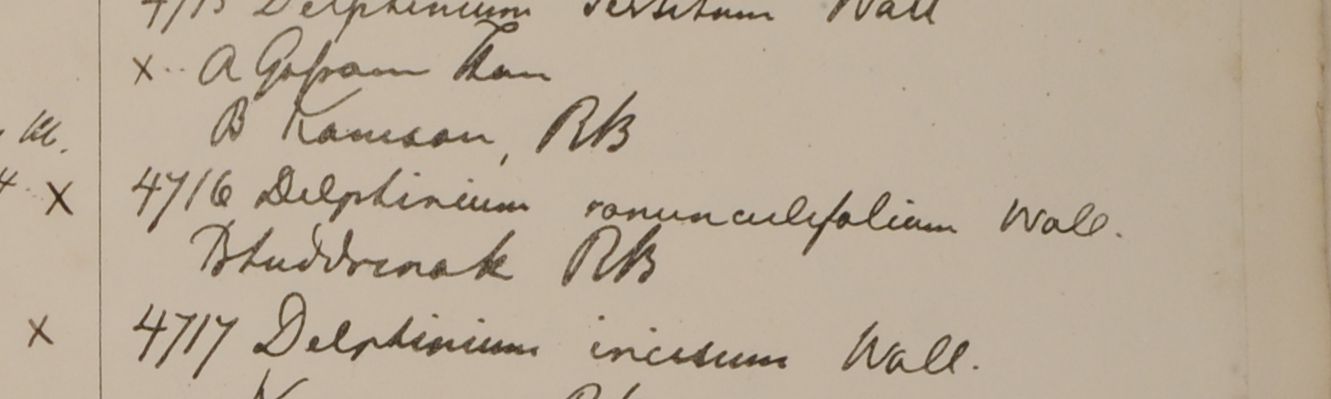 4715 Delphinium vestitum Wall
x A Gossam Than
B Kamaon, RB
x 4716 Delphinium ranunculifolium Wall.
Bhuddrinak RB
x 4717 Delphinium incisum Wall.